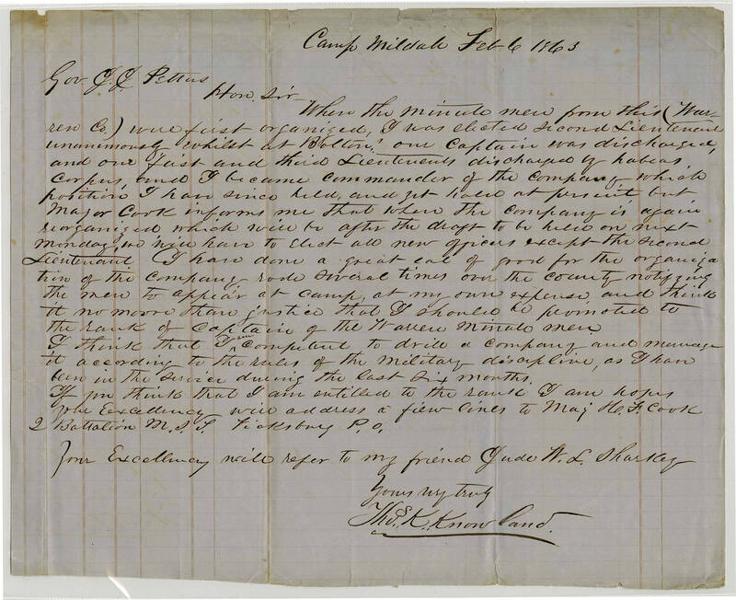 Camp Mildale Feb 6 1863
Gov J. J. Pettus
Hon. Sir
When the minute men from this (War-
ren Co.) were first organized, I was elected second Lieutenant
unanimously whilst at Bolton, our Captain was discharged,
and our first and third Lieutenants discharged by habeas
corpus, and I became commander of the company which
position I have since held, and yet hold at present but
Major Cook informs me that when the company is again
reorganized which will be after the draft to be held on next
Monday, we will have to elect all new officers except the second
Lieutenant I have done a great eal of good for the organiza
tion of the company rode several times over the county notifying
the men to appear at camp, at my own expense, and think
it no moore than justice that I should be promoted to
the rank of Captain of the Warren minute men
I think that I am competent to drill a company and manage
it according to the rules of the military discipline, as I have
been in the service during the last six months.
If you think that I am entitled to the rank I am hopes
your Excellency will address a few lines to Maj H. F. Cook
2 Battalion M. S. T. Vicksburg P. O.
Your Excellency will refer to my friend Jude W. L. Sharkey
Yours very truly
Thos. K. Knowland.